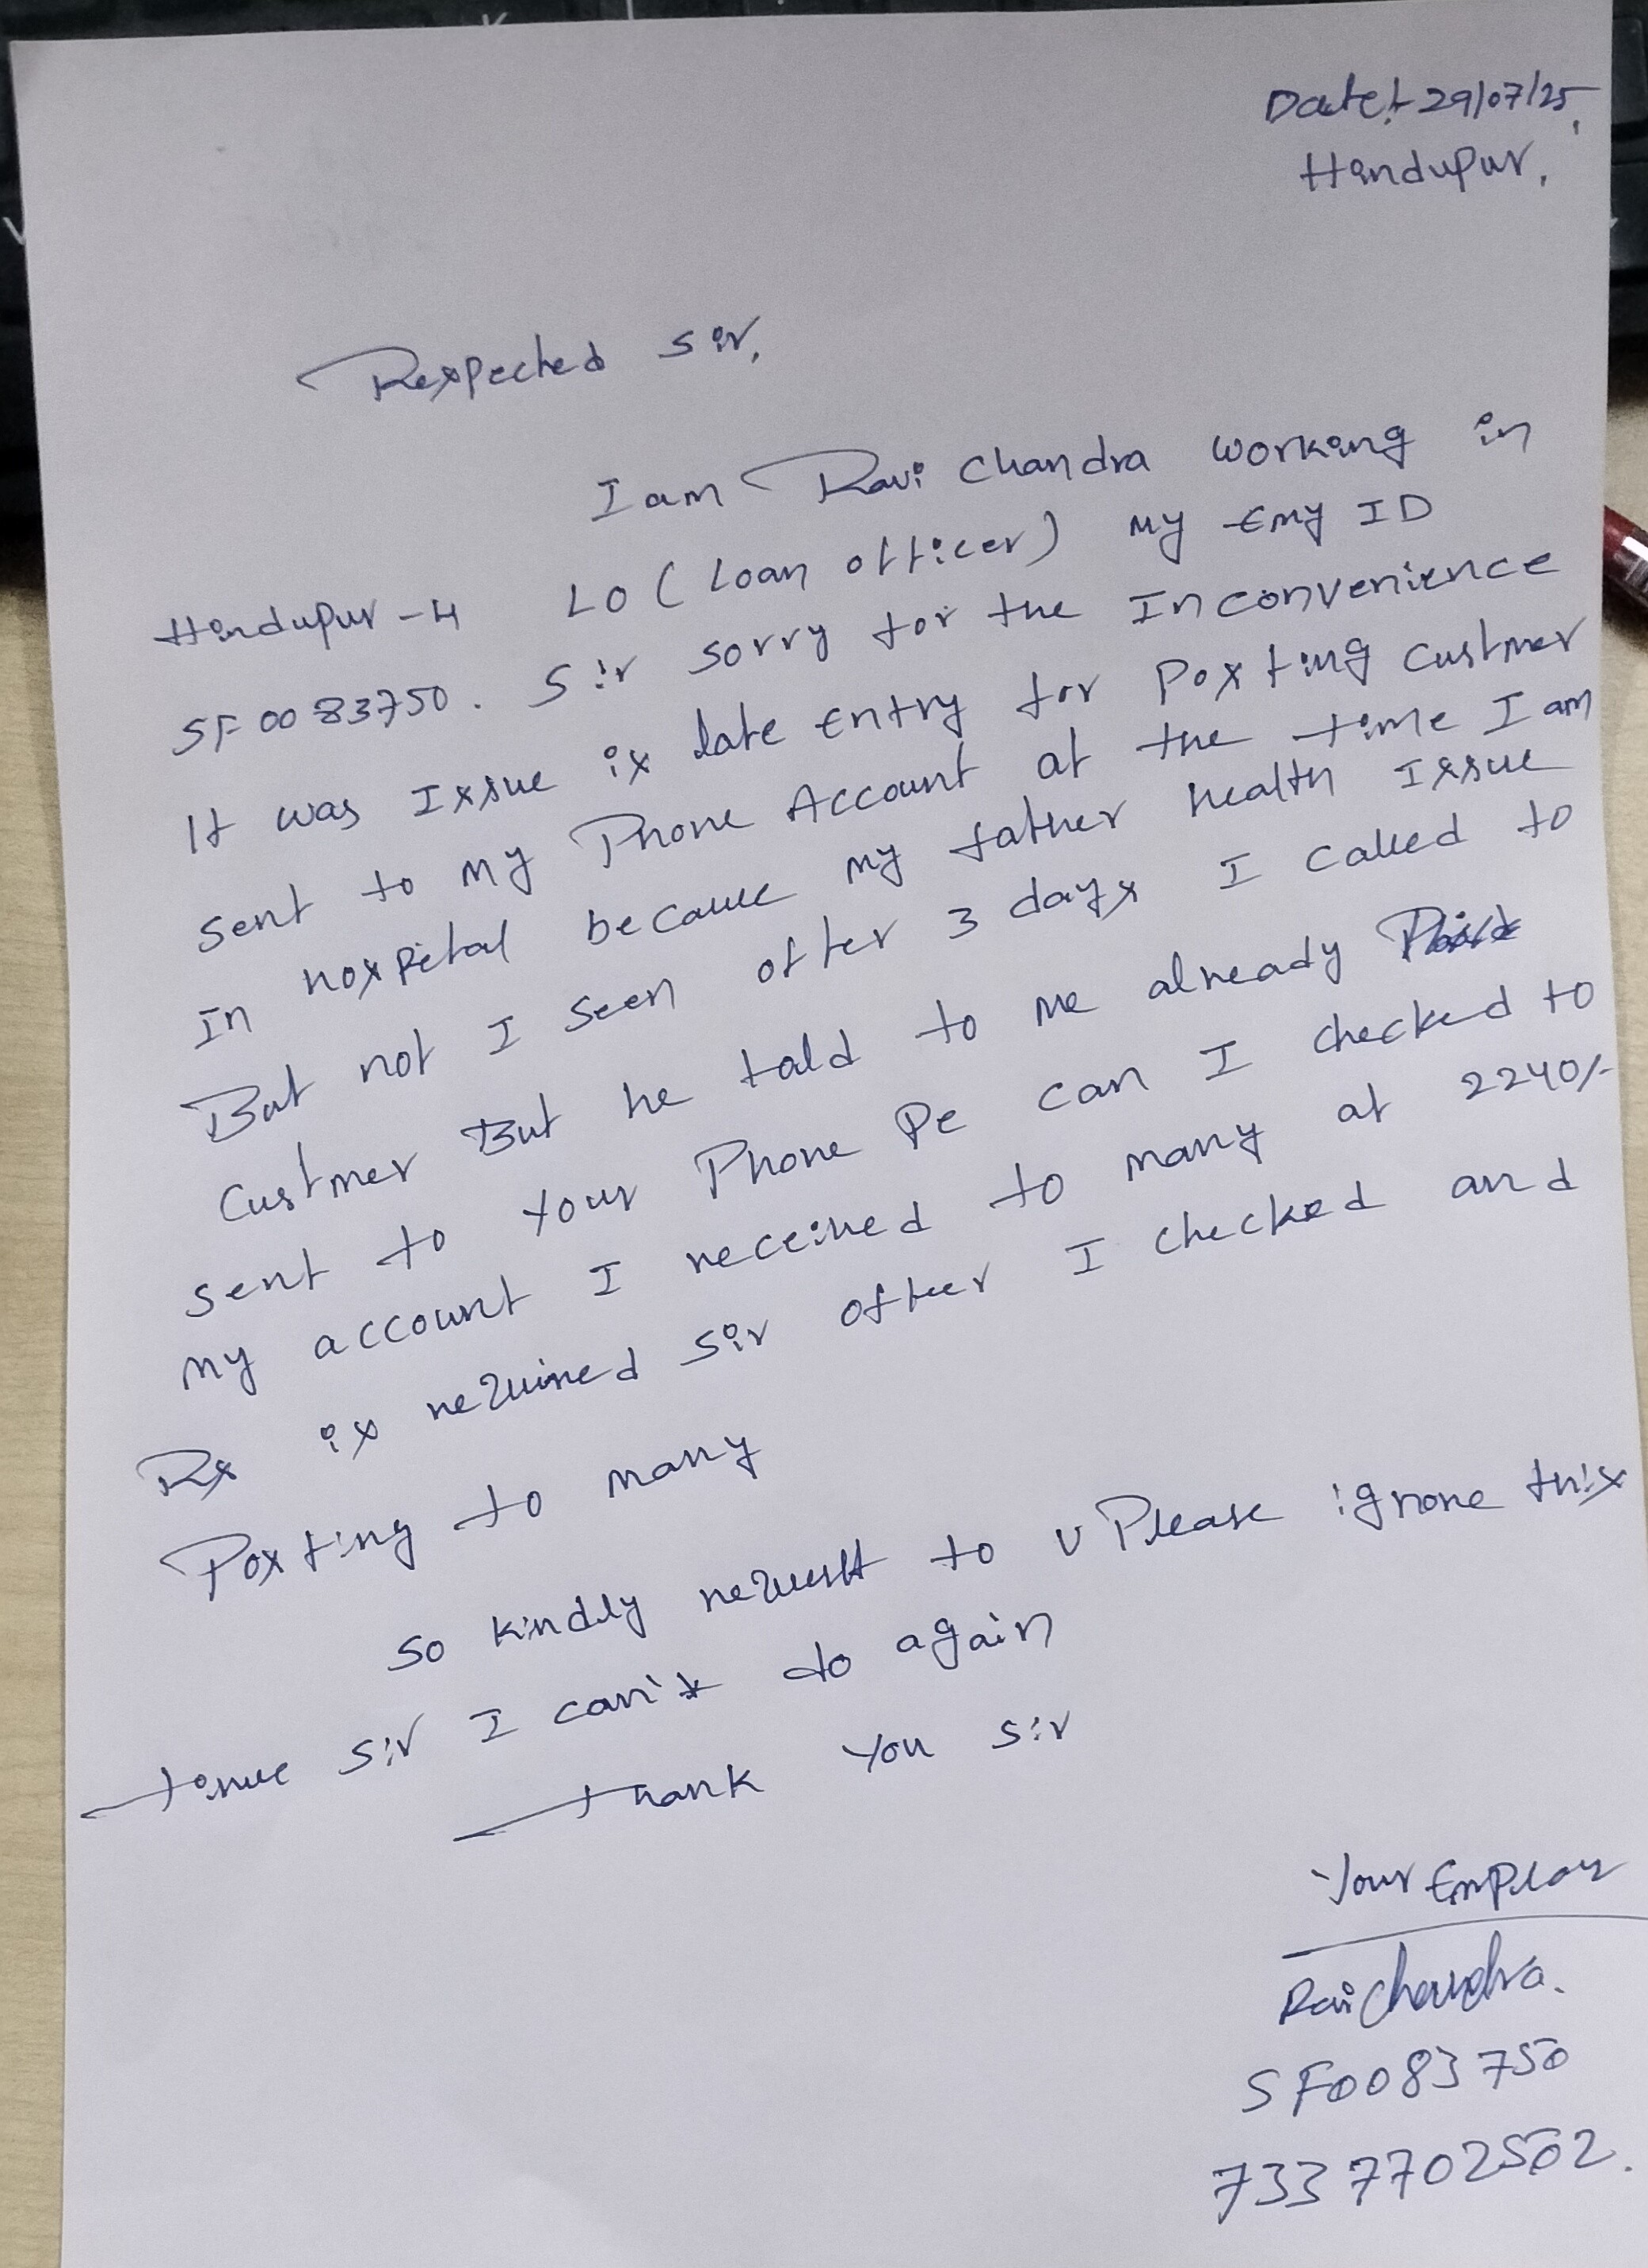 Date:- 29/07/25,
Hindupur,
Respected sir,
I am Ravi Chandra working in
Hindupur-4 LO (Loan officer) My Emy ID
SF0083750. Sir sorry for the Inconvenience
It was Issue is late Entry for Posting Custmer
sent to my Phone Account at the time I am
In hospital because my father health Issue
But not I seen after 3 days I called to
Custmer But he told to me already
sent to your Phone Pe can I checked to
my account I received to many at 2240/-
Rs is required sir after I checked and
Posting to many
so kindly request to U Please ignore this
time sir I can't do again
Thank You sir
Your Employ
Ravichandra.
SF0083750
7337702502.